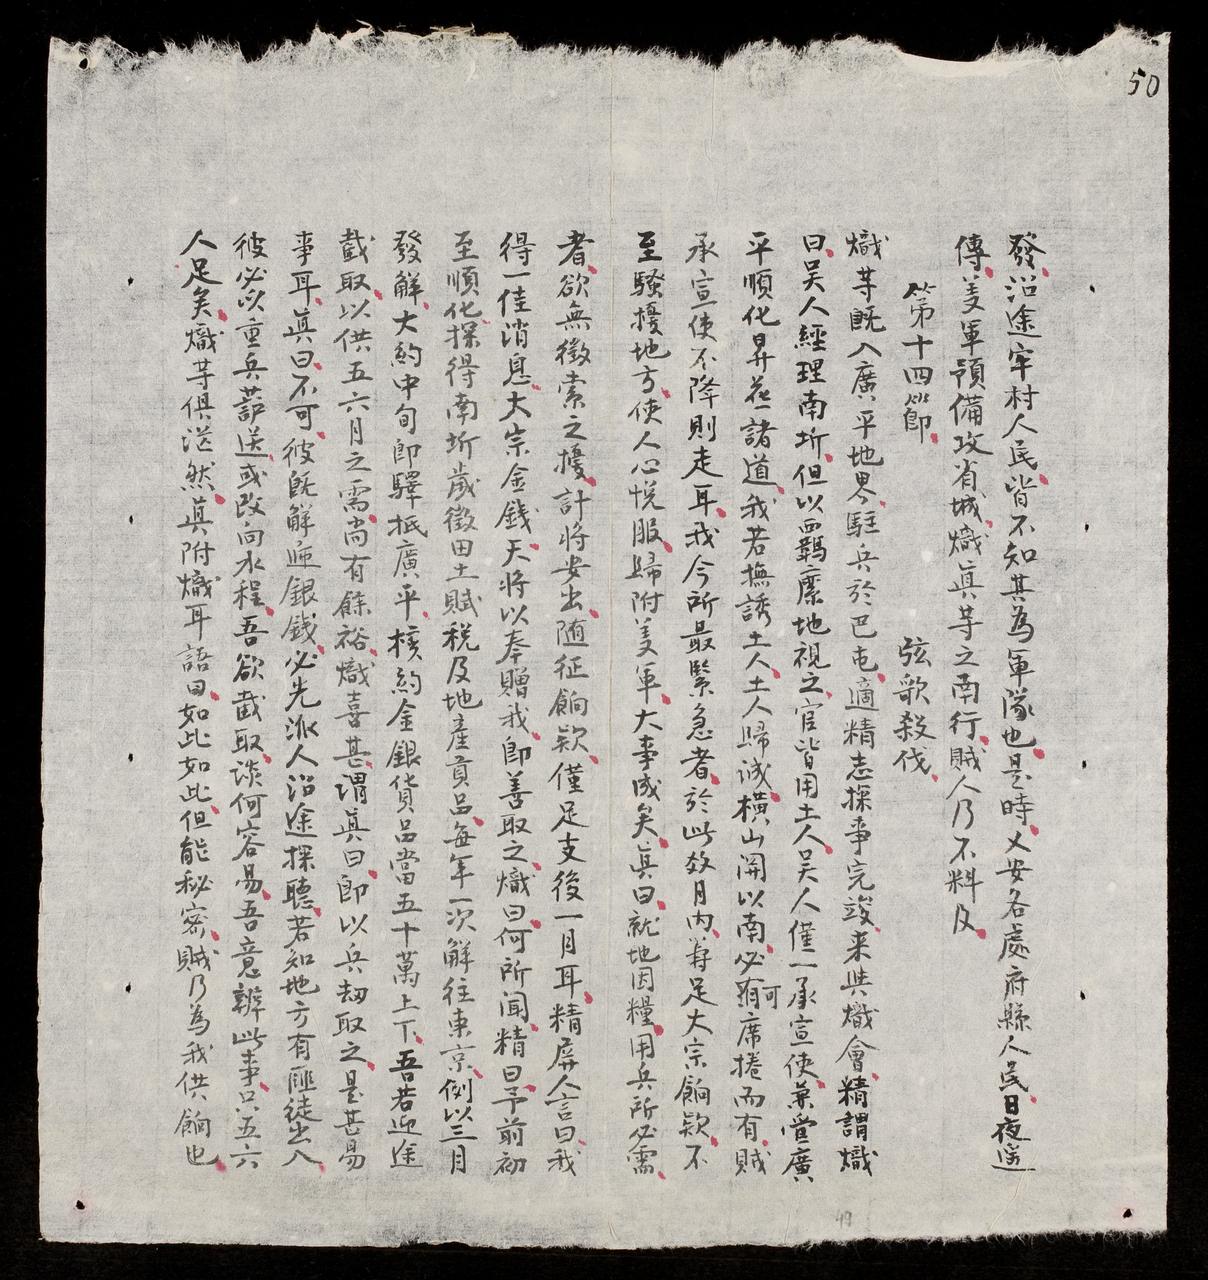 50
發沿途牢村人民皆不知其為軍隊也是時乂安各處府縣人民日夜遙
傳義軍預備攻省城熾真等之南行賊人乃不料及
第十四節 弦歌殺伐
熾等既入廣平地界駐兵於巴屯適精志探事完竣来與熾會精謂熾
曰吴人經理南圻但以羈縻地視之官皆用土人吴人僅一承宣使兼管廣
平順化昇花諸道我若撫誘土人土人歸誠橫山関以南必可席捲而有賊
承宣使不降則走耳我今所最緊急者於此数月內籌足大宗餉欵不
至騷擾地方使人心悦服歸附義軍大事成矣真曰就地因糧用兵所必需
者欲無徵索之擾計將安出随征餉欵僅足支後一月耳精屏人言曰我
得一佳消息大宗金錢天將以奉贈我即善取之熾曰何所聞精曰予前初
至順化探得南圻歲徵田土賦税及地產貢品每年一次解往東京例以三月
發解大約中旬即驛抵廣平核約金銀貨品當五十萬上下吾若迎途
截取以供五六月之需尚有餘裕熾喜甚謂真曰即以兵刼取之是甚易
事耳真曰不可彼既解運銀錢必先派人沿途探聽若知地方有匪徒出入
彼必以重兵護送或改向水程吾欲截取談何容易吾意辦此事只五六
人足矣熾等俱茫然真附熾耳語曰如此如此但能秘密賊乃為我供餉也
49